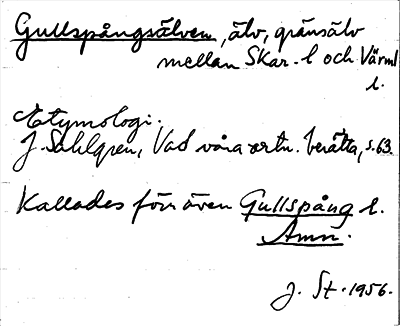 Gullspångsälven, älv, gränsälv
mellan Skar. l och Värml
l.
Etymologi.
J. Sahlgren, Vad våra ortn. berätta, s. 63.
Kallades förr även Gullspång l.
Åmn.
J. St. 1956.